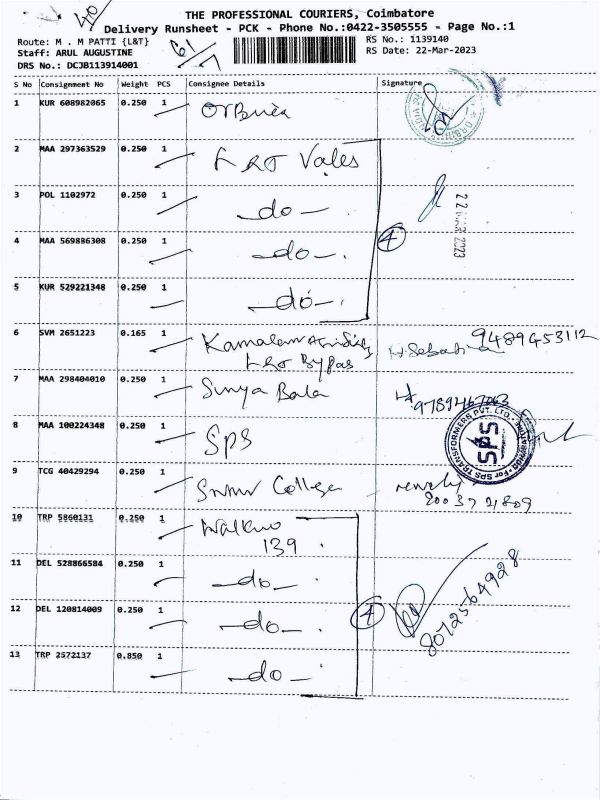 40
THE PROFESSIONAL COURIERS, Coimbatore
Delivery Runsheet - PCK - Phone No.:0422-3505555 - Page No.:1
Route: M . M PATTI {L&T} RS No.: 1139140
Staff: ARUL AUGUSTINE 61/7 RS Date: 22-Mar-2023
DRS No.: DCJB113914001
S No Consignment No Weight PCS Consignee Details Signature
1 KUR 608982065 0.250 1
2 MAA 297363529 0.250 1 L&T Vales
3 POL 1102972 0.250 1 -do-
22 MAR 2023
4 MAA 569886308 0.250 1 -do-. 4
5 KUR 529221348 0.250 1 -do-.
6 SVM 2651223 0.165 1 9489453112
L&T Bypas
7 MAA 298404010 0.250 1 Surya Bala
8 MAA 100224348 0.250 1 SPS
SPS
For SPS TRANSFORMERS PVT. LTD.,
9 TCG 40429294 0.250 1 College
10 TRP 5860131 0.250 1
139.
11 DEL 528866584 0.250 1 -do-.
12 DEL 120814009 0.250 1 -do-. 4 8072564928
13 TRP 2572137 0.850 1 -do-